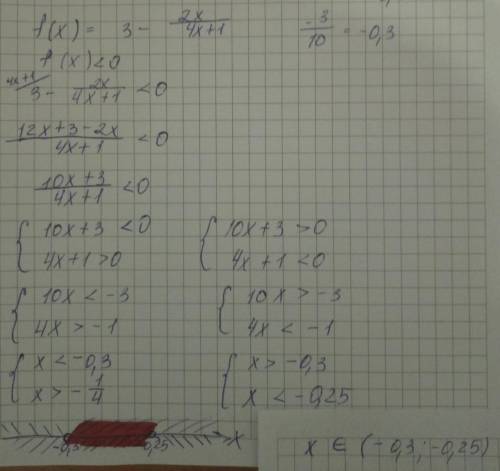 f(x) = 3 - 2x/(4x+1)
-3/10 = -0,3
f(x)<0
4x+1/ 3 - 2x/(4x+1) <0
(12x+3-2x)/(4x+1) <0
(10x+3)/(4x+1) <0
{ 10x+3 <0
4x+1>0
{ 10x+3 >0
4x+1<0
{ 10x < -3
4x > -1
{ 10x > -3
4x < -1
{ x < -0,3
x > -1/4
{ x > -0,3
x < -0,25
-0,3 -0,25 x
x ∈ (-0,3; -0,25)